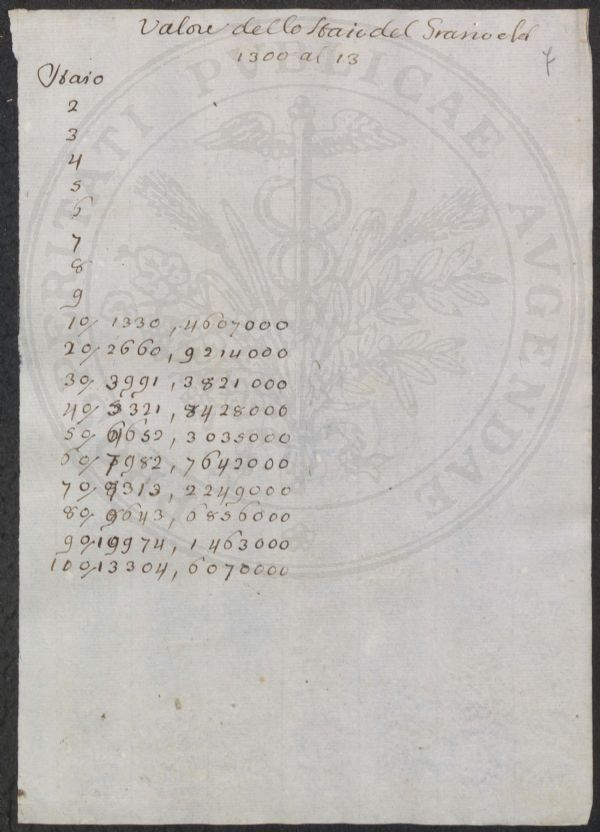 Valore dello Staio del Grano
1300 al 13
7
Staio
2
3
4
5
6
7
8
9
10/ 1330, 4607000
20/ 2660, 9214000
30/ 3991, 3821000
40/ 5321, 8428000
50/ 6652, 3035000
60/ 7982, 7642000
70/ 9313, 2249000
80/ 9643, 6856000
90/ 19974, 1463000
100/ 13304, 6070000
PROSPERITATI PVBLICAE AVGENDAE